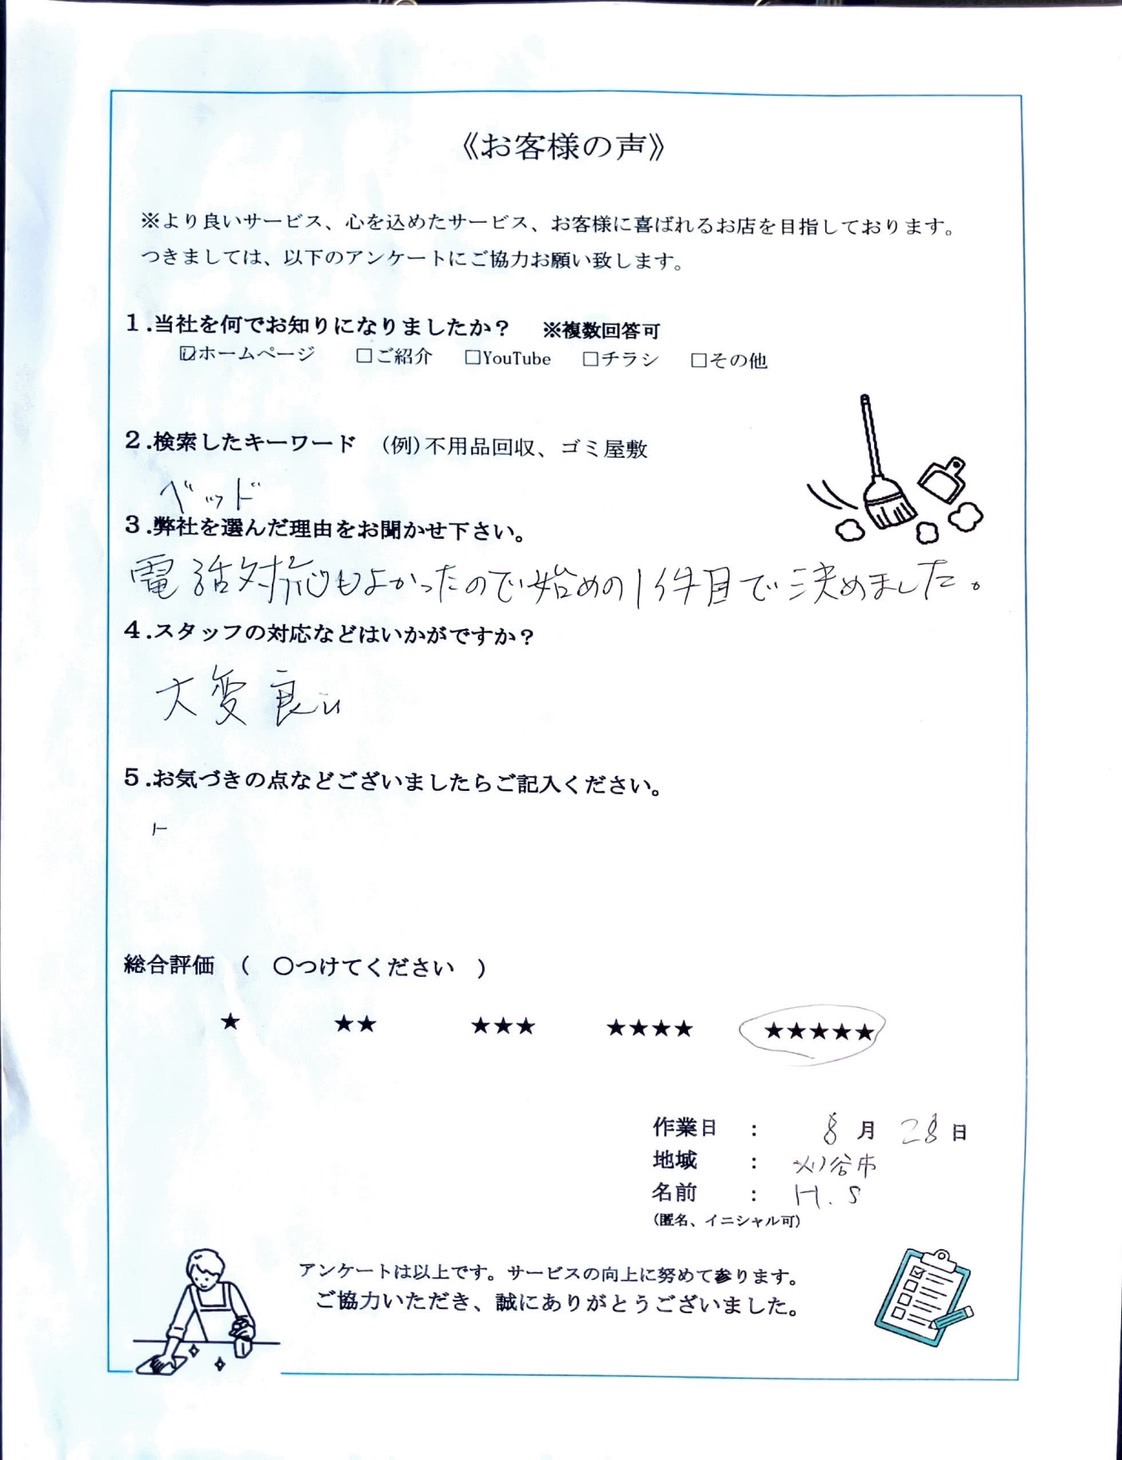 《お客様の声》
※より良いサービス、心を込めたサービス、お客様に喜ばれるお店を目指しております。
つきましては、以下のアンケートにご協力お願い致します。
1.当社を何でお知りになりましたか？ ※複数回答可
☑ホームページ □ご紹介 □YouTube □チラシ □その他
2.検索したキーワード （例）不用品回収、ゴミ屋敷
ベッド
3.弊社を選んだ理由をお聞かせ下さい。
電話対応もよかったので始めの1件目で決めました。
4.スタッフの対応などはいかがですか？
大変良い
5.お気づきの点などございましたらご記入ください。
総合評価 （ 〇つけてください ）
★ ★★ ★★★ ★★★★ ★★★★★
作業日 ： 8月 28日
地域 ： 刈谷市
名前 ： H.S
（匿名、イニシャル可）
アンケートは以上です。サービスの向上に努めて参ります。
ご協力いただき、誠にありがとうございました。